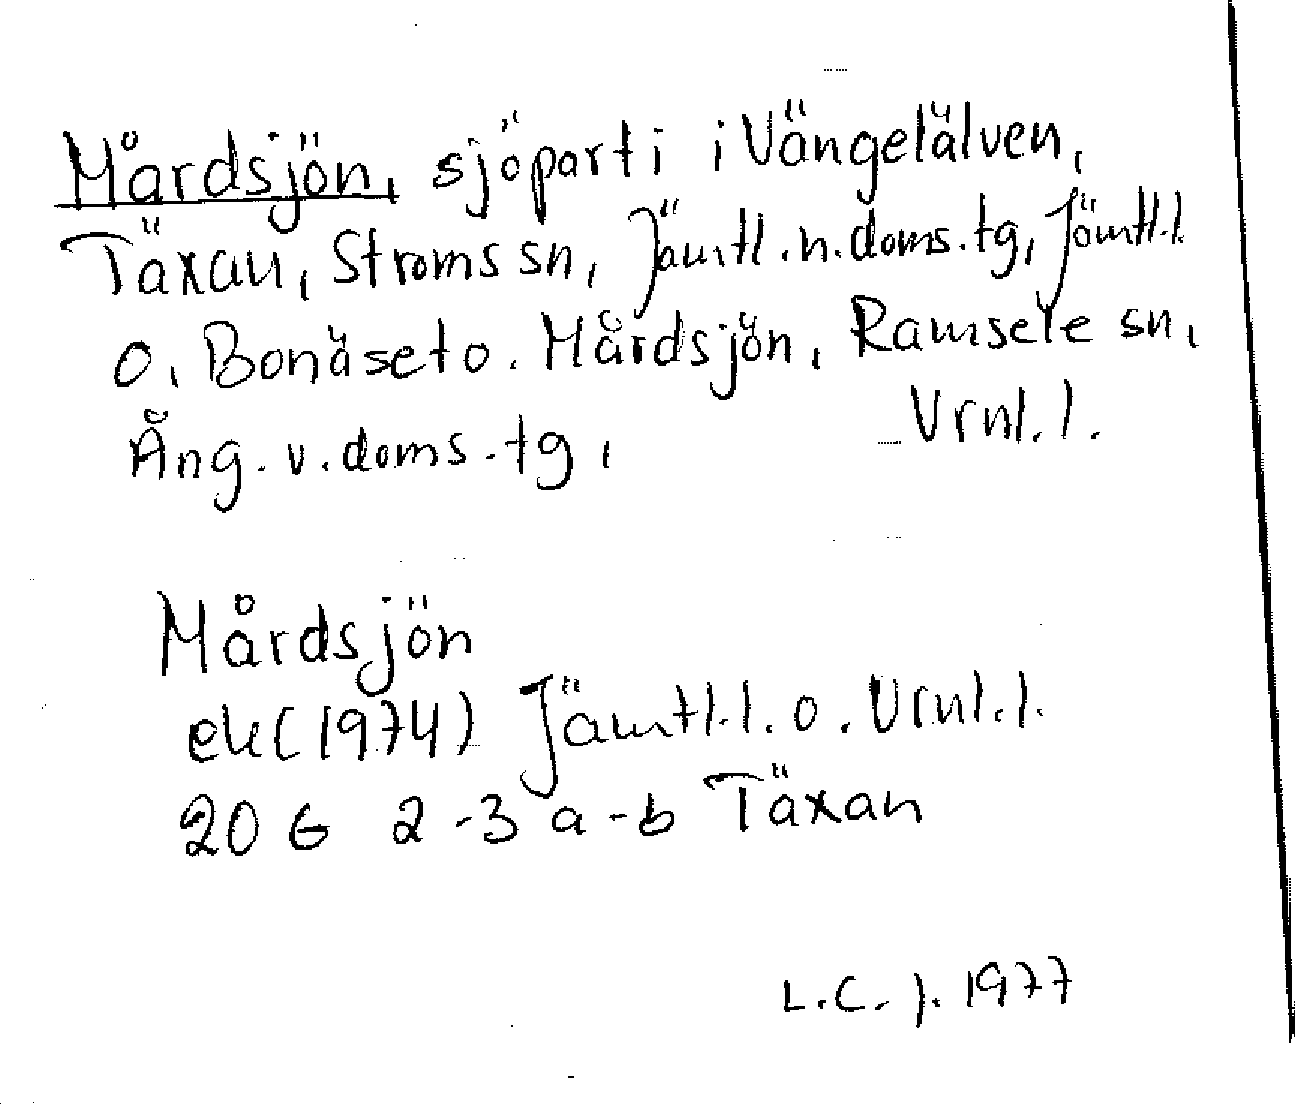 Mårdsjön, sjöparti i Vängelälven,
Täxan, Ströms sn, Jämtl. n. doms. tg, Jämtl. l.
o, Bonäset o. Mårdsjön, Ramsele sn,
Ång. v. doms. tg, Vrnl. l.
Mårdsjön
ek (1974) Jämtl. l. o. Vrnl. l.
20 G 2-3 a-b Täxan
L.C. J. 1977